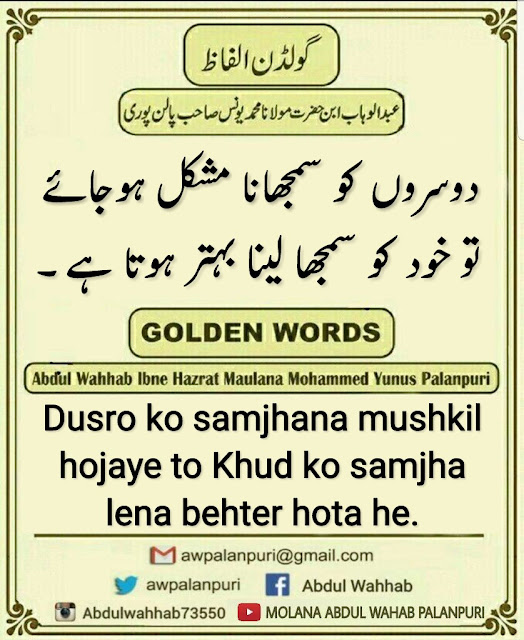 گولڈن الفاظ
عبدالوہاب ابن حضرت مولانا محمد یونس صاحب پالن پوری
دوسروں کو سمجھانا مشکل ہوجائے
تو خود کو سمجھا لینا بہتر ہوتا ہے ۔
GOLDEN WORDS
Abdul Wahhab Ibne Hazrat Maulana Mohammed Yunus Palanpuri
Dusro ko samjhana mushkil
hojaye to Khud ko samjha
lena behter hota he.
awpalanpuri@gmail.com
awpalanpuri Abdul Wahhab
Abdulwahhab73550 MOLANA ABDUL WAHAB PALANPURI